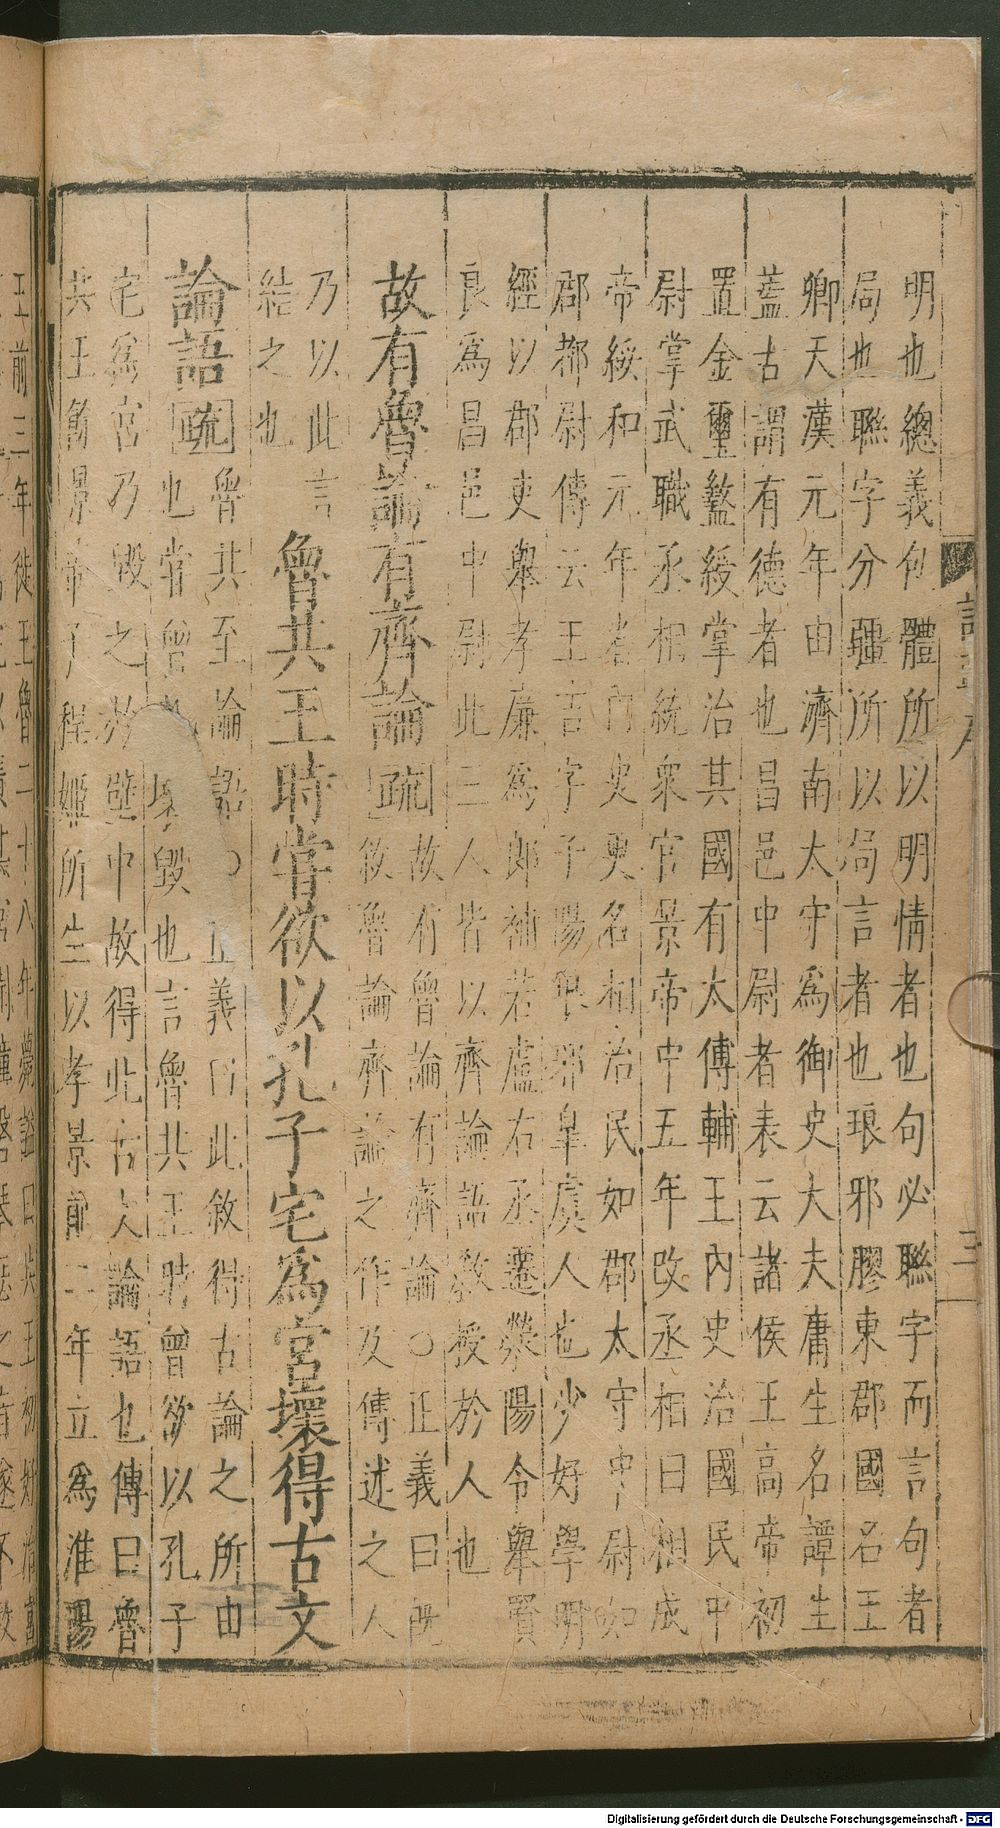 明也總義句體所以明情者也句必聯字而言句者
局也聯字分疆所以局言者也琅邪膠東郡國名王
卿天漢元年由濟南大守為御史大夫庸生名譚生
蓋古謂有德者也昌邑中尉者表云諸侯王高帝初
置金璽盭綬掌治其國有太傅輔王內史治國民中
尉掌武職丞相統衆官景帝中五年改丞相曰相成
帝綏和元年省內史更名相治民如郡太守中尉如
郡都尉傳云王吉字子陽琅邪臯虞人也少好學明
經以郡吏舉孝廉爲郎補若盧右丞遷榮陽令舉賢
良爲昌邑中尉此三人皆以齊論語教授於人也
故有魯論有齊論
疏
故有魯論有齊論○正義曰既
敘魯論齊論之作及傳述之人
乃以此言
結之也
魯共王時嘗欲以孔子宅爲宮壞得古文
論語
疏
魯共至論語○正義曰此敘得古論之所由
也嘗曾 壞毀也言魯共王時曾欲以孔子
宅爲宮乃毀之於壁中故得此古文論語也傳曰魯
共王餘景帝子程姬所生以孝景前二年立爲淮陽
王前三年徙王魯二十八年薨謚曰共王初好治宮
三
Digitalisierung gefördert durch die Deutsche Forschungsgemeinschaft - DFG